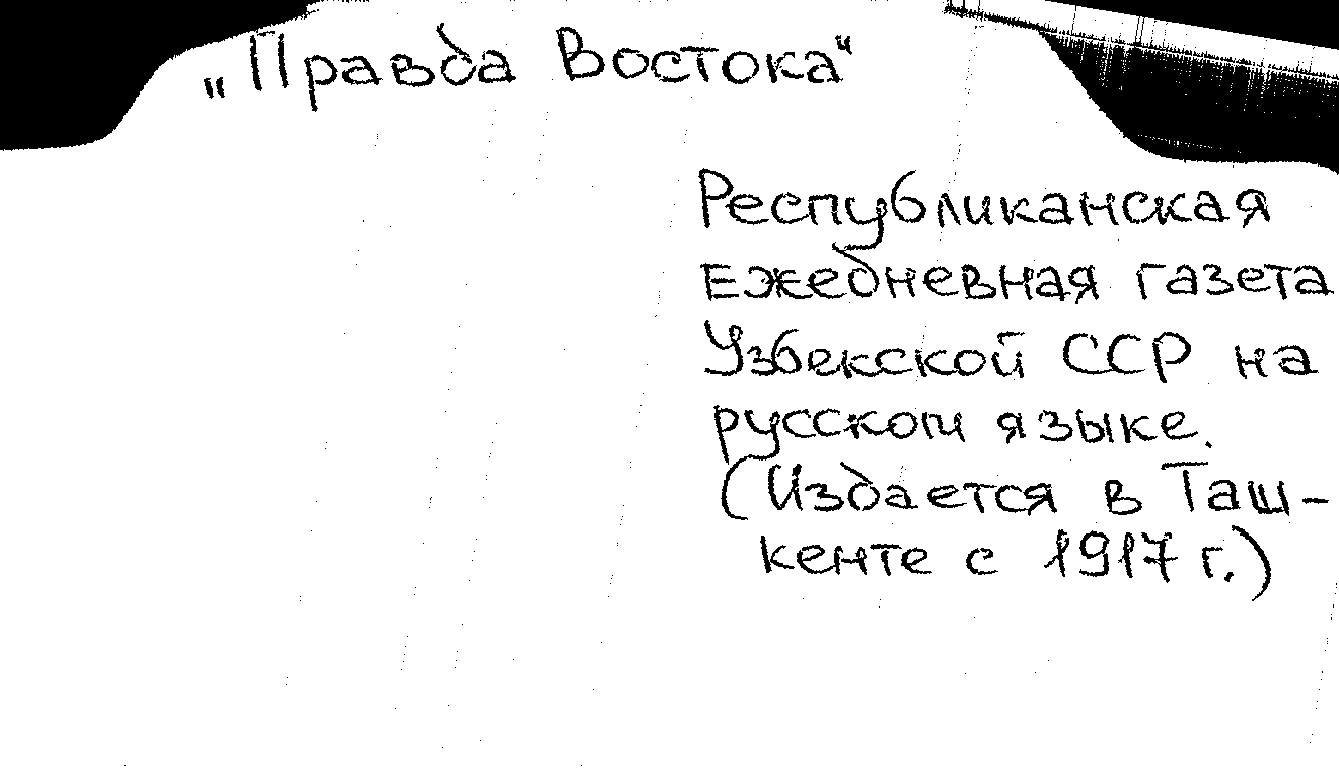 „Правда Востока“
Республиканская
Ежедневная газета
Узбекской ССР на
русском языке.
(Издается в Таш-
кенте с 1917 г.)